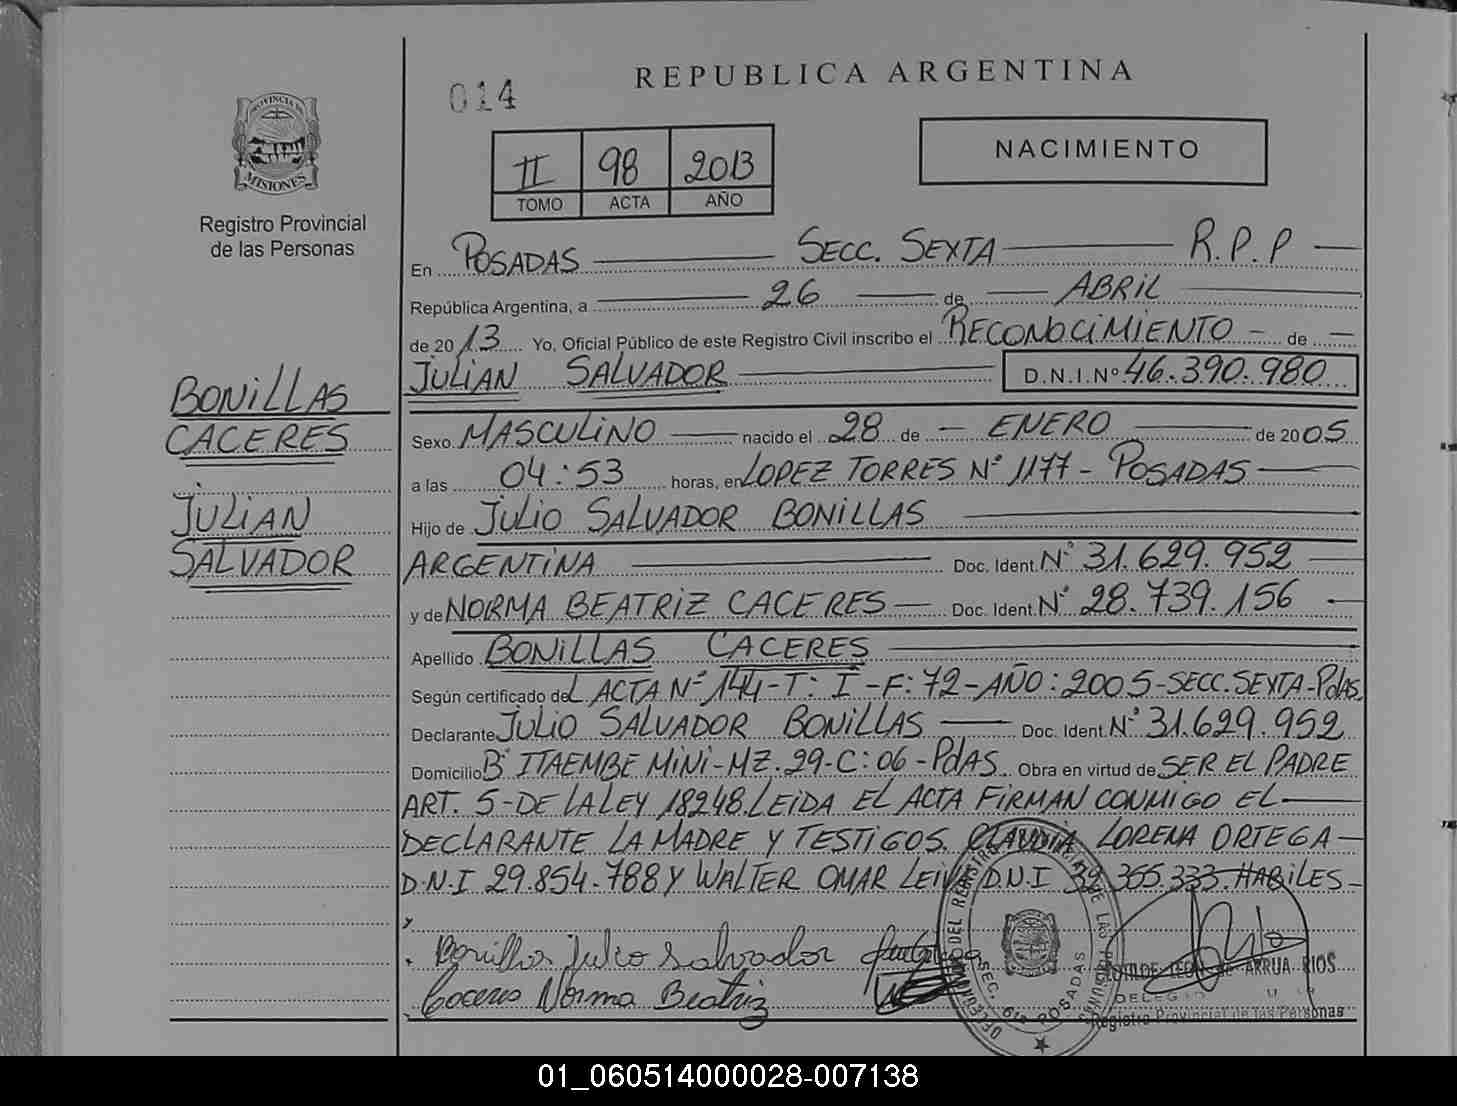 014
REPUBLICA ARGENTINA
PROVINCIA DE
MISIONES
Registro Provincial
de las Personas
II 98 2013
TOMO ACTA AÑO
NACIMIENTO
En POSADAS SECC. SEXTA R.P.P
República Argentina, a 26 de ABRIL
de 2013 Yo, Oficial Público de este Registro Civil inscribo el RECONOCIMIENTO de
JULIAN SALVADOR D.N.I.Nº 46.390.980
BONILLAS
CACERES
JULIAN
SALVADOR
Sexo MASCULINO nacido el 28 de ENERO de 2005
a las 04:53 horas, en LOPEZ TORRES Nº 1177 - POSADAS
Hijo de JULIO SALVADOR BONILLAS
ARGENTINA Doc. Ident. Nº 31.629.952
y de NORMA BEATRIZ CACERES Doc. Ident. Nº 28.739.156
Apellido BONILLAS CACERES
Según certificado del ACTA Nº 144-T: I -F: 72-AÑO: 2005-SECC. SEXTA-Pdas.
Declarante JULIO SALVADOR BONILLAS Doc. Ident. Nº 31.629.952
Domicilio Bº ITAEMBE MINI-MZ. 29-C: 06-PdAS. Obra en virtud de SER EL PADRE
ART. 5-DE LA LEY 18248. LEIDA EL ACTA FIRMAN CONMIGO EL
DECLARANTE LA MADRE Y TESTIGOS. CLAUDIA LORENA ORTEGA
D.N.I 29.854.788 Y WALTER OMAR LEIVA D.N.I 32.365.333. HABILES
Bonillas Julio Salvador
Caceres Norma Beatriz
SEC. 6ta POSADAS
ARRUA RIOS
Registro Provincial de las Personas
01_060514000028-007138